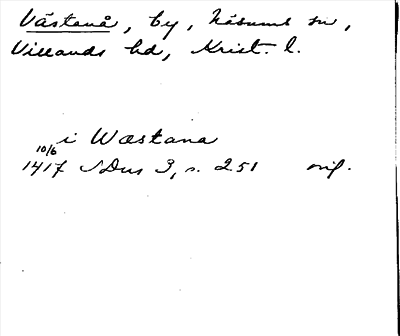 Västanå, by, Näsums sn,
Villands hd, Krist. l.
i Wæstana
10/6
1417 SDns 3, s. 251 orig.